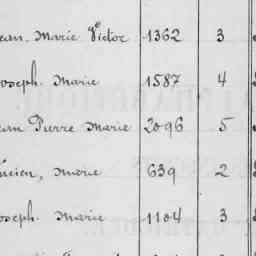 ean. Marie Victor 1362 3
oseph. Marie 1587 4
ean Pierre Marie 2096 5
ucien, Marie 639 2
oseph. Marie 1104 3